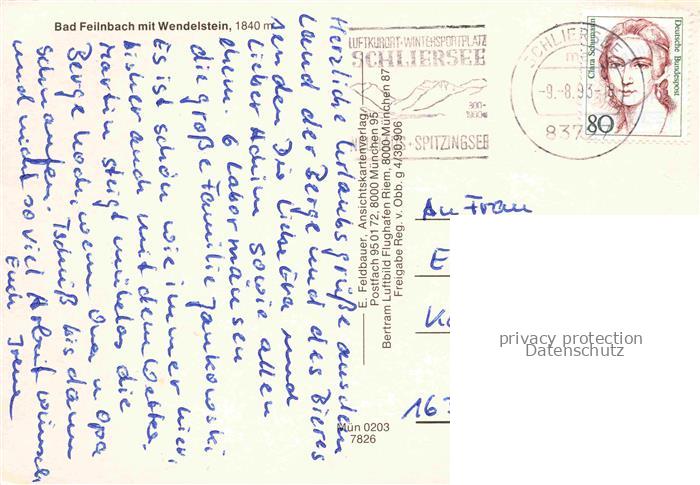 Bad Feilnbach mit Wendelstein, 1840 m
Herzliche Urlaubsgrüße aus dem
Land der Berge und des Bieres
senden Dir liebe Eva und
lieber Achim sowie allen
euren 6 Labormäusen
die große Familie Jankowski.
Es ist schön wie immer hier
bisher auch mit dem Wetter.
Martin steigt mühelos die
Berge hoch, wenn Oma u Opa
schnaufen. Tschüß bis dann
und nicht so viel Arbeit wünscht
Euch Irene
E. Feldbauer, Ansichtskartenverlag,
Postfach 95 01 72, 8000 München 95
Bertram Luftbild Flughafen Riem, 8000 München 87
Freigabe Reg. v. Obb. g 4/30.906
Mün 0203
7826
LUFTKURORT·WINTERSPORTPLATZ
SCHLIERSEE
800-
· SPITZINGSEE
SCHLIERSEE
-9.-8.93-
837
Deutsche Bundespost
Clara Schumann
80
An Frau
E
K
163
privacy protection
Datenschutz